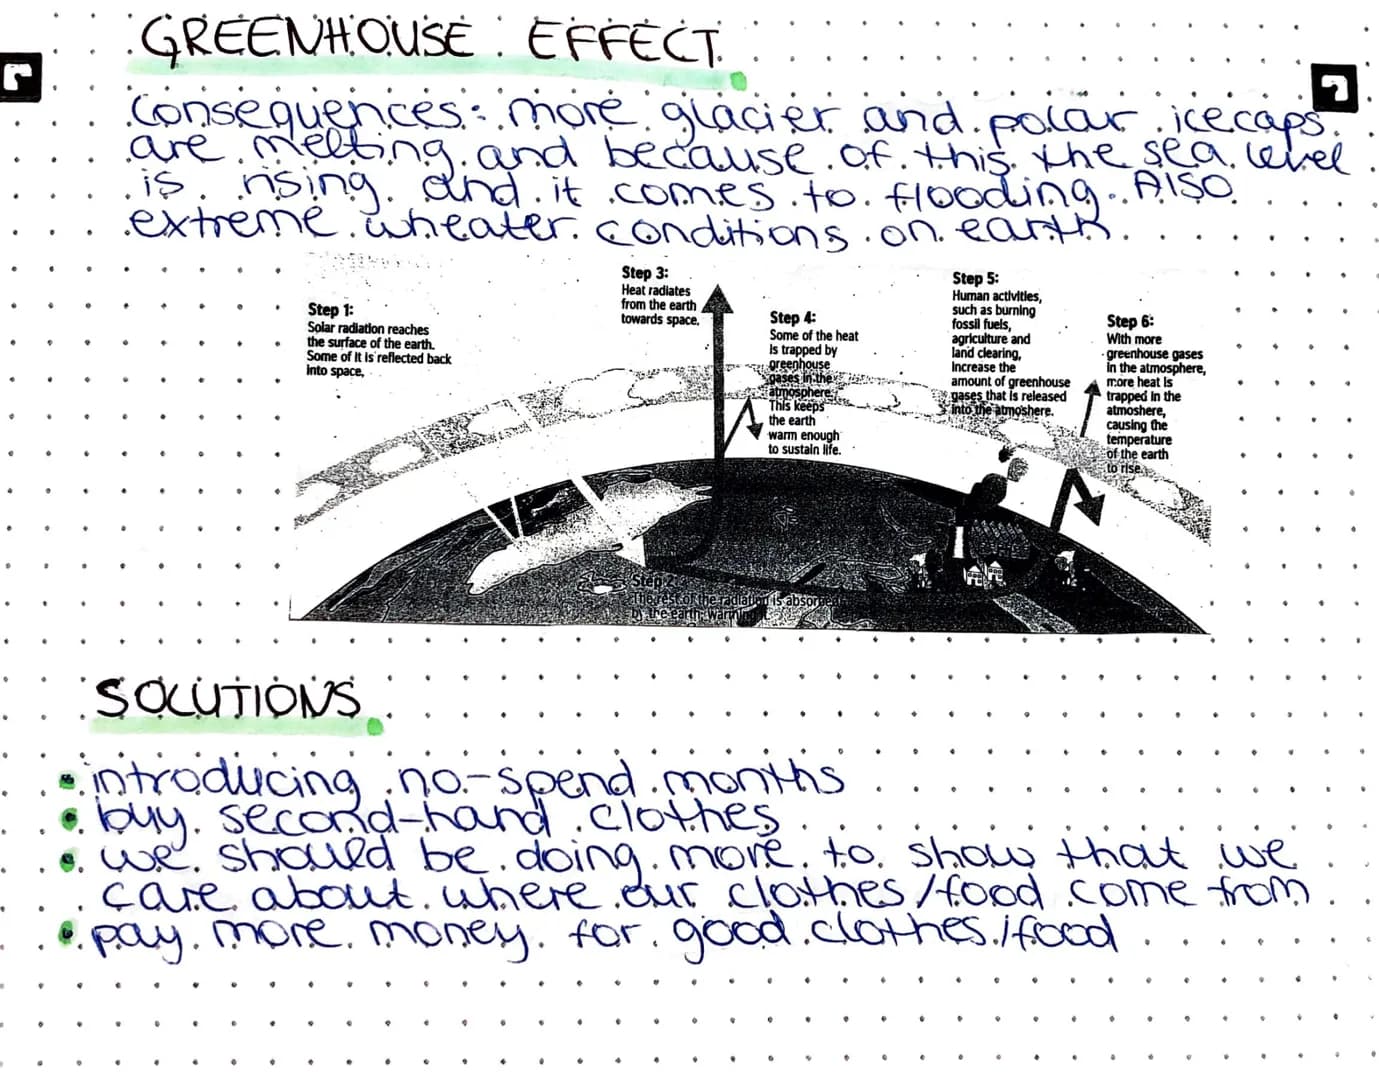 GREENHOUSE EFFECT
Consequences: more glacier and polar icecaps
are melting and because of this the sea level
is rising and it comes to flooding. Also
extreme wheater conditions on earth.
Step 1:
Solar radiation reaches
the surface of the earth.
Some of it is reflected back
into space.
Step 3:
Heat radiates
from the earth
towards space.
Step 4:
Some of the heat
is trapped by
greenhouse
gases in the
atmosphere.
This keeps
the earth
warm enough
to sustain life.
Step 5:
Human activities,
such as burning
fossil fuels,
agriculture and
land clearing,
increase the
amount of greenhouse
gases that is released
into the atmoshere.
Step 6:
With more
greenhouse gases
in the atmosphere,
more heat is
trapped in the
atmoshere,
causing the
temperature
of the earth
to rise.
Step 2:
The rest of the radiation is absorbed
by the earth, warming it
SOLUTIONS
• introducing no-spend months
• buy second-hand clothes
• we should be doing more to show that we
care about where our clothes/food come from
• pay more money for good clothes/food